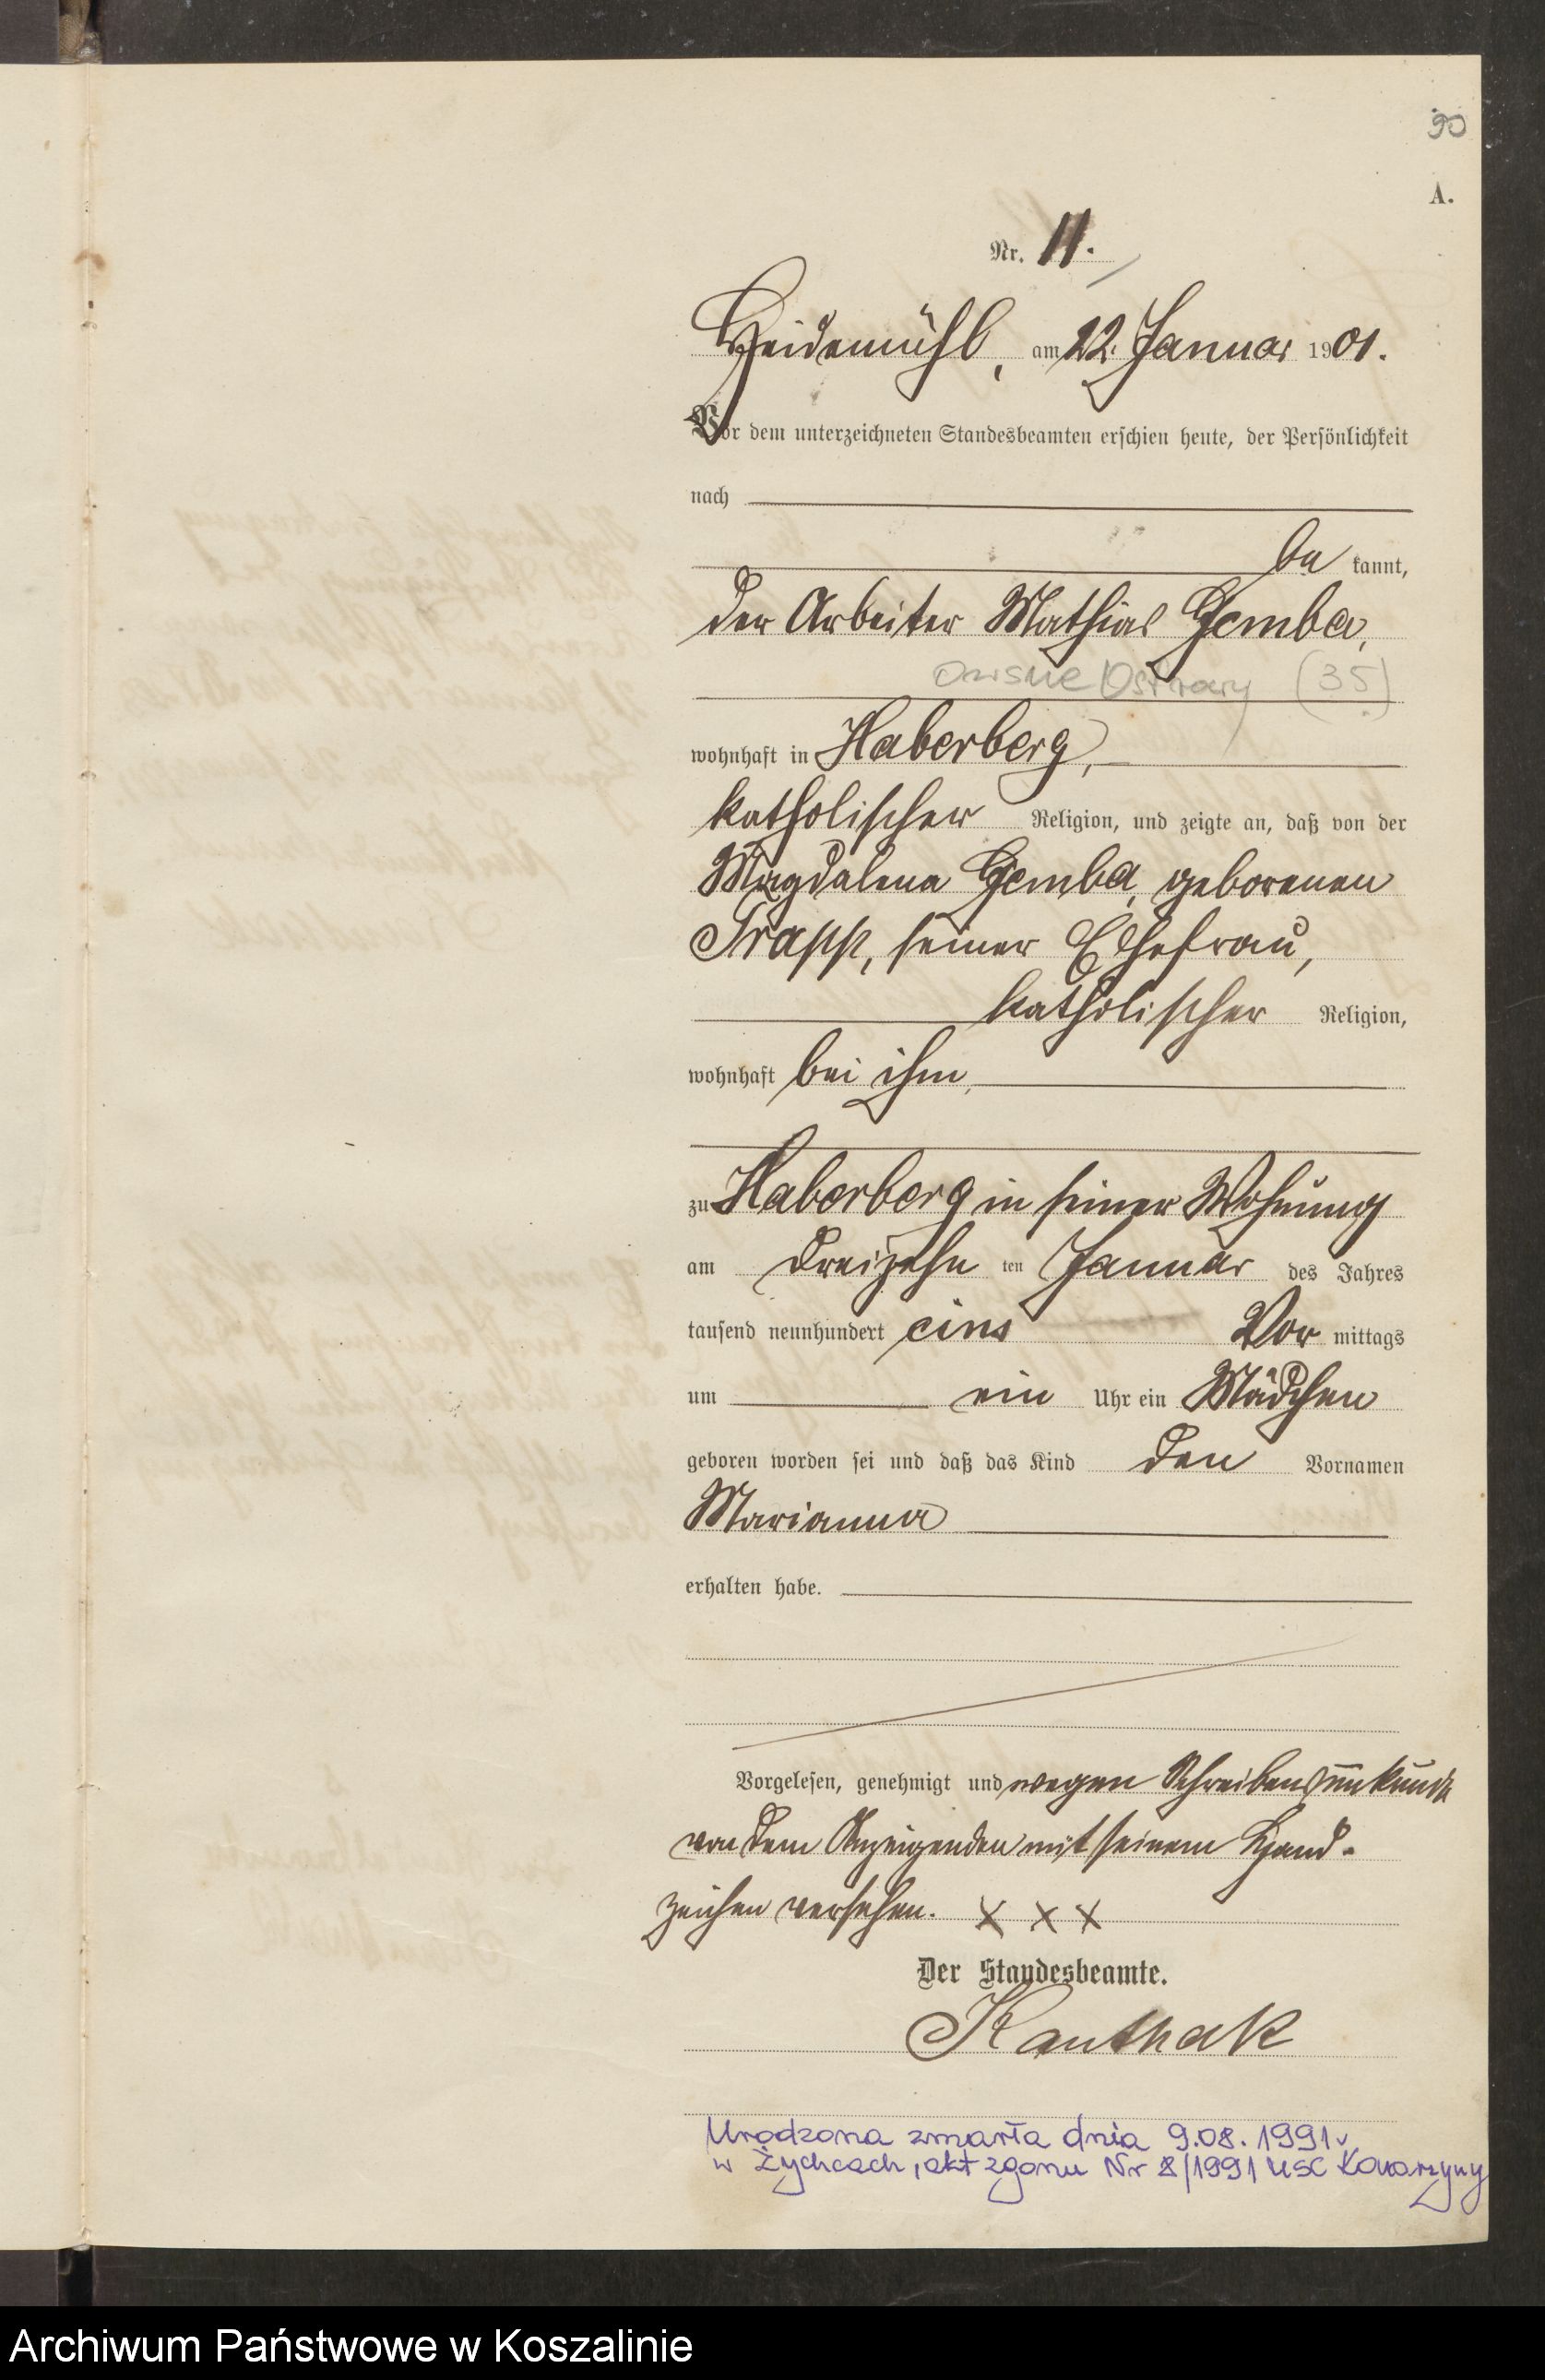 90
A.
Nr. 11.
Heidemühl, am 22. Januar 1901.
Vor dem unterzeichneten Standesbeamten erschien heute, der Persönlichkeit
nach
be kannt,
der Arbeiter Mathias Gemba,
Owsne Ostrowy (35)
wohnhaft in Haberberg,
katholischer Religion, und zeigte an, daß von der
Magdalena Gemba, geborenen
Trapp, seiner Ehefrau,
katholischer Religion,
wohnhaft bei ihm,
zu Haberberg in seiner Wohnung
am dreizehn ten Januar des Jahres
tausend neunhundert eins Vor mittags
um ein Uhr ein Mädchen
geboren worden sei und daß das Kind den Vornamen
Marianna
erhalten habe.
Vorgelesen, genehmigt und wegen Schreibensunkunde
von dem Anzeigenden mit seinem Hand-
zeichen versehen. X X X
Der Standesbeamte.
Kanthak
Urodzona zmarła dnia 9.08.1991 r.
w Żychcach, akt zgonu Nr 8/1991 USC Konarzyny
Archiwum Państwowe w Koszalinie